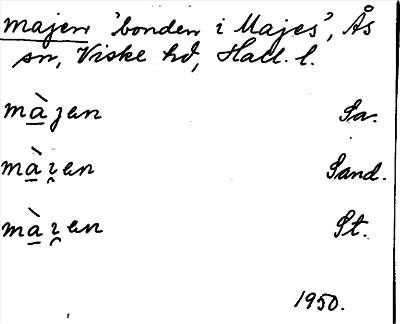 majen 'bonden i Majes', Ås
sn, Viske hd, Hall. l.
mà̱jen Sa.
mà̱ı̯en Sand.
mà̱ı̯en St.
1950.